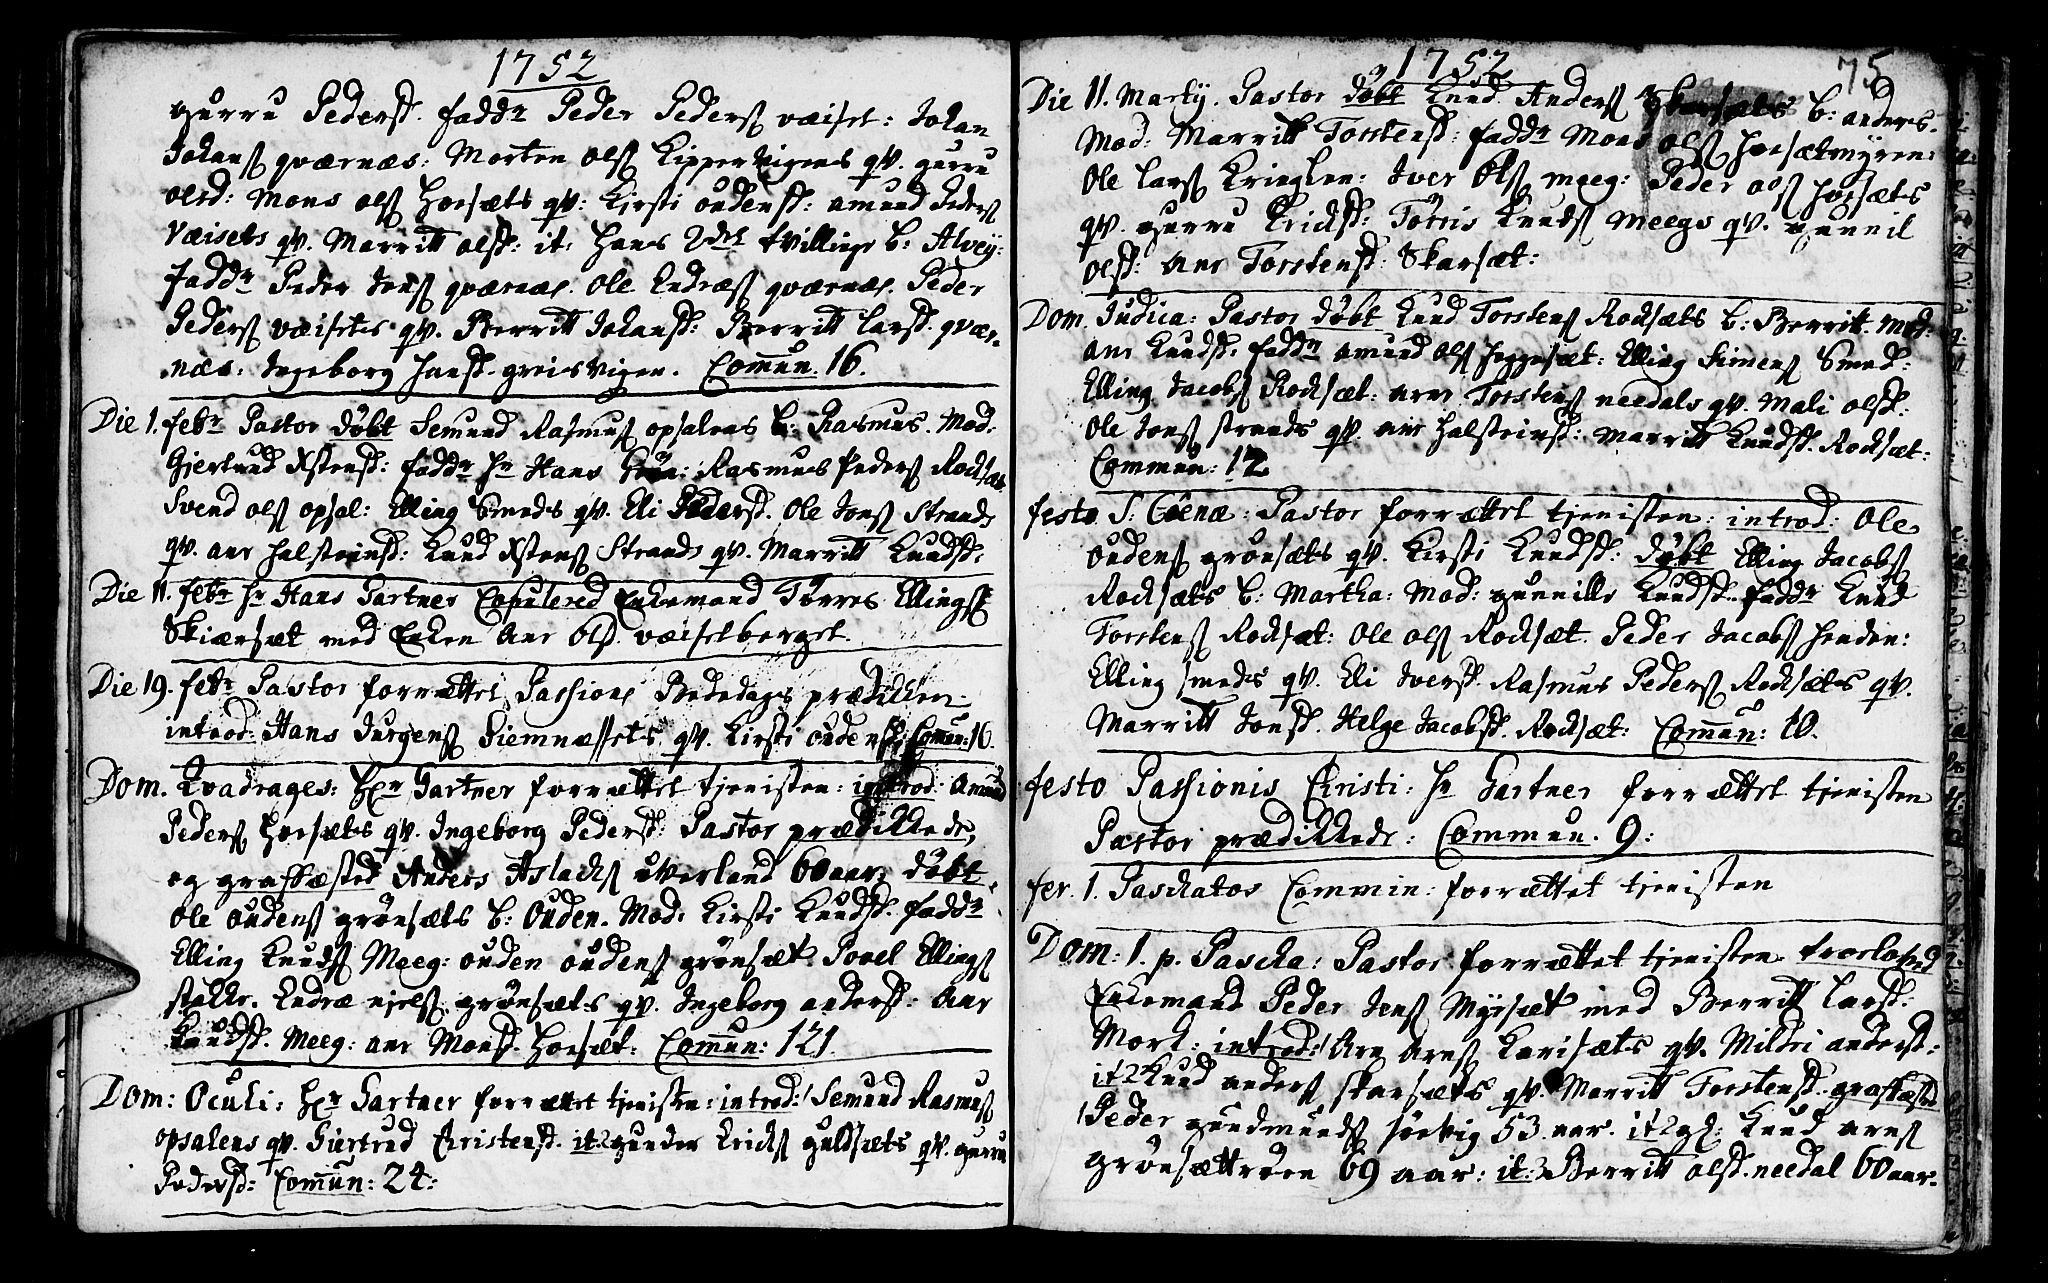 1752
gurru Pedersd. fadd^r Peder Peders væiset: Johan
Johans qværnæs: Morten ols Kippervigens qv. gurru
olsd: Mons ols Horsæts qv: Kirsti oudensd: amund Peders
Væisets qv. Marritt olsd: it: hans 2det tvillinge b: Alvey:
Fadd^r Peder Jens qværnæs. Ole Endræs qværnæs. Peder
Peders væisetes qv. Berritt Johansd: Berritt larsd. qvær-
næs: Ingeborg hansd. greisvigen. Com̄un. 16.
Die 1. feb^r Pastor döbt Semund Rasmus opsalens b: Rasmus. Mod:
Gjertrud Xstensd: fadd^r H^r Hans Grön: Rasmus Peders Rodsæt
Svend ols opsal: Elling Smeds qv. Eli Pedersd. Ole Jons Strands
qv. ane halsteinsd: Knud Xstens Strands qv. Marritt Knudsd:
Die 11. feb^r H^r Hans Gartner Copulered Enkemand Törres Ellings
Skiærsæt med Enken Ane Olsd. væisetberget.
Die 19. feb^r Pastor forrættet Passions Bededags prædikken
introd: Hans Jurgens Siemnæssets qv. Kirsti oudensd: Com̄un: 16.
Dom. Qvadrages: H^r Gartner forrættet tjenisten: introd: Amund
Peders Horsæts qv. Ingeborg Pedersd: Pastor prædikkede,
og graffæsted Anders Aslachs uverland 60 aar: döbt
Ole Oudens grönsæts b: Ouden. Mod: Kirsti Knudsd. fadd^r
Elling Knuds Meeg: ouden oudens grönsæt. Povel Ellings
stokke. Endræ njels grönsæts qv. Ingeborg andersd: Ane
Knudsd. Meeg: ane Monsd. Horsæt: Com̄un: 121.
Dom: Oculi: H^r Gartner forrættet tjenisten: introd: Semund Rasmus
opsalens qv. Giertrud Christensd. it2 gunder Erichs guldsæts qv. gurru
Pedersd: Com̄un: 24:
1752
75
Die 11. Martij. Pastor döbt Knud Anders Skarsæts b: anders.
Mod: Marritt Torstensd: fadd^r Mons ols horsætmyren:
Ole lars Kringlen: Iver Ols meeg: Peder ols horsæts
qv. gurru Erichsd: Törris Knuds Meegs qv. gunnil
olsd: ane Torstensd: Skarsæt:
Dom. Judica: Pastor döbt Knud Torstens Rodsæts b: Berritt. Mod:
ane Knudsd. fadd^r amund ols heggesæt: Elling Simens Smed:
Elling Jacobs Rodsæt: arne Torstens needals qv. Mali olsd:
Ole Jons strands qv. ane halsteinsd: Marritt Knudsd. Rodsæt:
Commun: 12
festo S. Coenæ: Pastor forrættet tjenisten: introd: Ole
oudens grönsæts qv. Kirsti Knudsd: döbt Elling Jacobs
Rodsæts b: Martha: Mod: gunille Knudsd. fadd^r Knud
Torstens Rodsæt: Ole ols Rodsæt. Peder Jacobs henden:
Elling smeds qv. Eli Iversd. Rasmus Peders Rodsæts qv.
Marritt Jonsd. Helge Jacobsd. Rodsæt: Com̄un: 10.
festo Passionis Christi: H^r Gartner forrættet tjenisten
Pastor prædikkede: Commun. 9:
fer. 1. Paschatos Commin: forrættet tjenisten
Dom: 1. p. Pascha: Pastor forrættet tjenisten. troelofved
Enkemand Peder Jens Myrsæt med Berritt larsd.
Mork: introd: Arn Arns Karisæts qv. Mildri andersd:
it2 Knud anders skarsæts qv. Marritt Torstensd. graffæsted
Peder gundmunds sörvig 53 aar. it2 gl: Knud arns
grönsættröen 69 aar: it: 3 Berritt olsd. needal 60 aar.